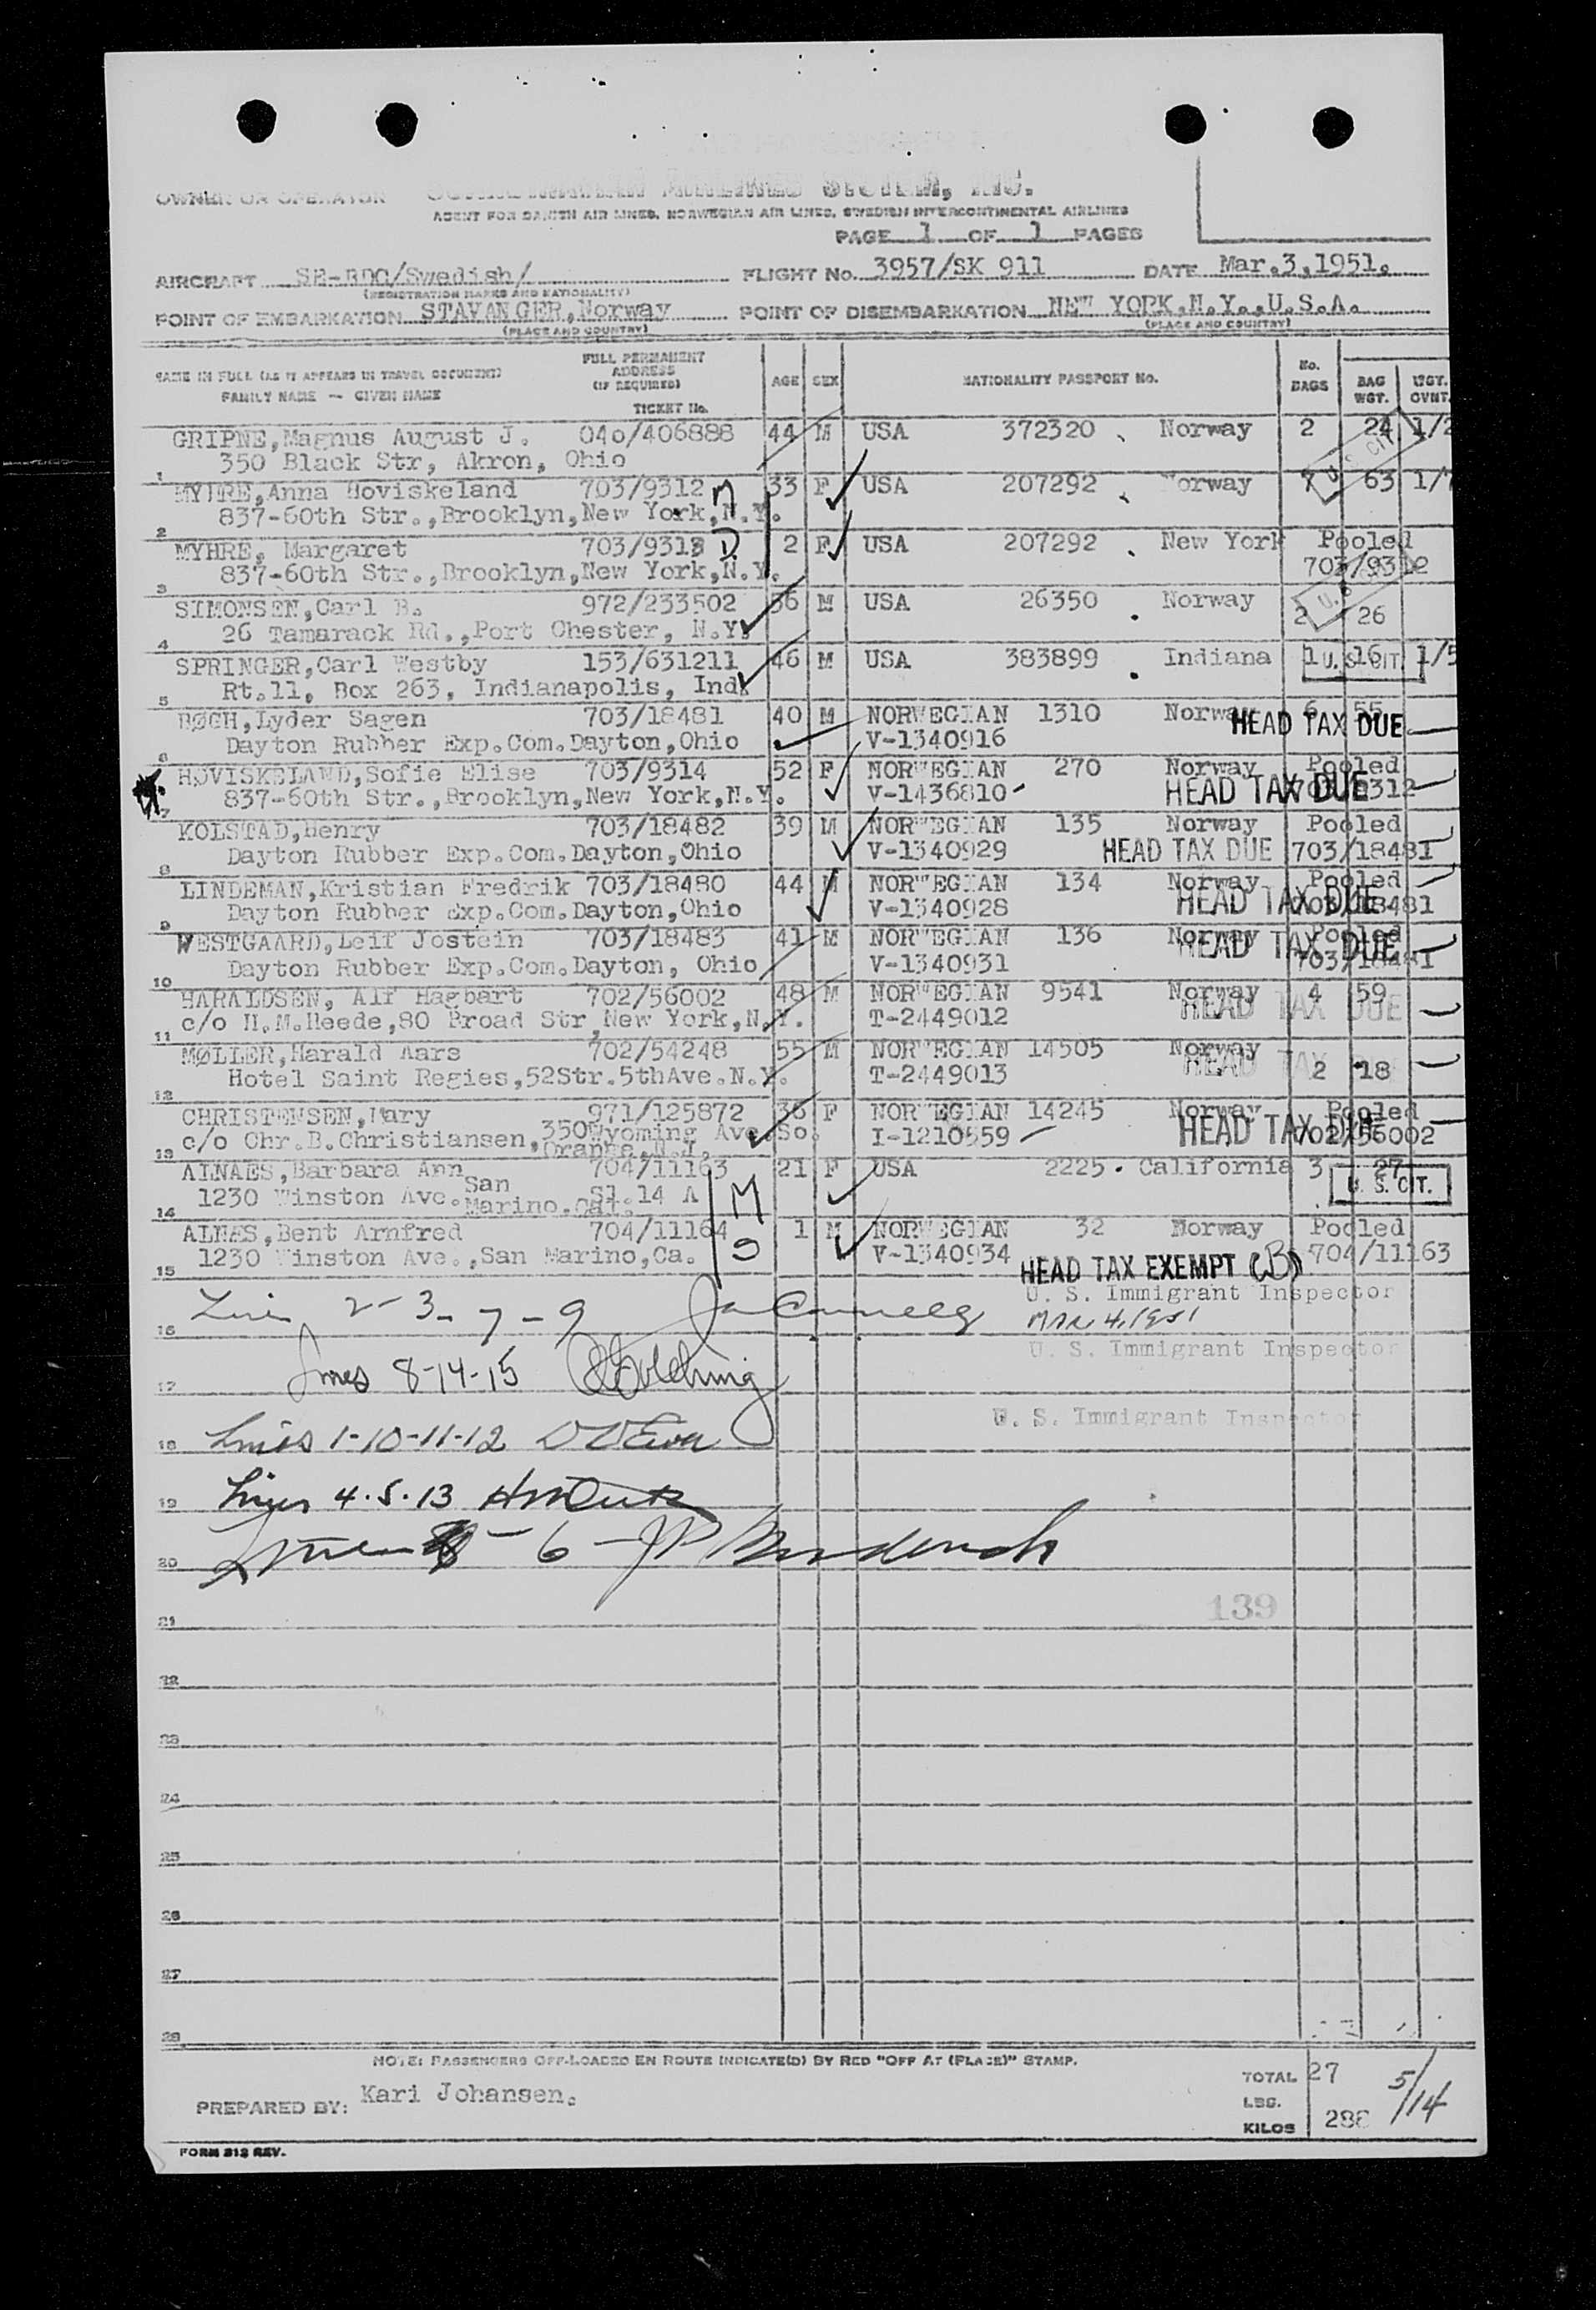 OWNER OR OPERATOR SCANDINAVIAN AIRLINES SYSTEM, INC.
AGENT FOR DANISH AIR LINES, NORWEGIAN AIR LINES, SWEDISH INTERCONTINENTAL AIRLINES
PAGE 1 OF 1 PAGES
AIRCRAFT SE-BDO/Swedish/ FLIGHT No. 3957/SK 911 DATE Mar.3,1951.
(REGISTRATION MARKS AND NATIONALITY)
POINT OF EMBARKATION STAVANGER,Norway POINT OF DISEMBARKATION NEW YORK,N.Y.,U.S.A.
(PLACE AND COUNTRY) (PLACE AND COUNTRY)
NAME IN FULL (AS IT APPEARS IN TRAVEL DOCUMENT) FAMILY NAME — GIVEN NAME FULL PERMANENT ADDRESS (IF REQUIRED) TICKET No. AGE SEX NATIONALITY PASSPORT No. No. BAGS BAG WGT. WGT. OVNT.
GRIPNE,Magnus August J. 040/406888 44 M USA 372320 Norway 2 24 1/2
1 350 Black Str, Akron, Ohio U. S. CIT.
MYHRE,Anna Hoviskeland 703/9312 M 33 F USA 207292 Norway 7 63 1/7
2 837-60th Str.,Brooklyn,New York,N.Y.
MYHRE, Margaret 703/9313 D 2 F USA 207292 New York Pooled
3 837-60th Str.,Brooklyn,New York,N.Y. 703/9312
SIMONSEN,Carl B. 972/233502 36 M USA 26350 Norway
4 26 Tamarack Rd.,Port Chester, N.Y. 2 26
SPRINGER,Carl Westby 153/631211 46 M USA 383899 Indiana 1 16 1/5
5 Rt.11, Box 263, Indianapolis, Ind. U. S. CIT.
BØGH,Lyder Sagen 703/18481 40 M NORWEGIAN 1310 Norway 6 55
6 Dayton Rubber Exp.Com.Dayton,Ohio V-1340916 HEAD TAX DUE
HOVISKELAND,Sofie Elise 703/9314 52 F NORWEGIAN 270 Norway Pooled
7 837-60th Str.,Brooklyn,New York,N.Y. V-1436810 HEAD TAX DUE 703/9312
KOLSTAD,Henry 703/18482 39 M NORWEGIAN 135 Norway Pooled
8 Dayton Rubber Exp.Com.Dayton,Ohio V-1340929 HEAD TAX DUE 703/18481
LINDEMAN,Kristian Fredrik 703/18480 44 M NORWEGIAN 134 Norway Pooled
9 Dayton Rubber Exp.Com.Dayton,Ohio V-1340928 HEAD TAX DUE 703/18481
WESTGAARD,Leif Jostein 703/18483 41 M NORWEGIAN 136 Norway Pooled
10 Dayton Rubber Exp.Com.Dayton, Ohio V-1340931 HEAD TAX DUE 703/18481
HARALDSEN, Alf Hagbart 702/56002 48 M NORWEGIAN 9541 Norway 4 59
11 c/o H.M.Heede,80 Broad Str,New York,N.Y. T-2449012 HEAD TAX DUE
MØLLER,Harald Aars 702/54248 55 M NORWEGIAN 14505 Norway
12 Hotel Saint Regies,52Str.5thAve.N.Y. T-2449013 HEAD TAX 2 18
CHRISTENSEN,Mary 971/125872 36 F NORWEGIAN 14245 Norway Pooled
13 c/o Chr.B.Christiansen,350Wyoming Ave.So. Orange,N.J. I-1210559 HEAD TAX DUE 702/56002
ALNAES,Barbara Ann 704/11163 21 F USA 2225 California 3 27
14 1230 Winston Ave.San Marino.Cal. Sl.14 A M U. S. CIT.
ALNÆS,Bent Arnfred 704/11164 1 M NORWEGIAN 32 Norway Pooled
15 1230 Winston Ave.,San Marino,Ca. S V-1340934 HEAD TAX EXEMPT (B) 704/11163
U. S. Immigrant Inspector
16 2-3-7-9 Mar 4, 1951
U. S. Immigrant Inspector
17 Lines 8-14-15
U. S. Immigrant Inspector
18 Lines 1-10-11-12
19 Lines 4.5.13
20 - 6 - JP
139
21
22
23
24
25
26
27
28
NOTE: PASSENGERS OFF-LOADED EN ROUTE INDICATE(D) BY RED "OFF AT (PLACE)" STAMP.
PREPARED BY: Kari Johansen.
TOTAL 27 5/14
LBS.
KILOS 288
FORM 312 REV.